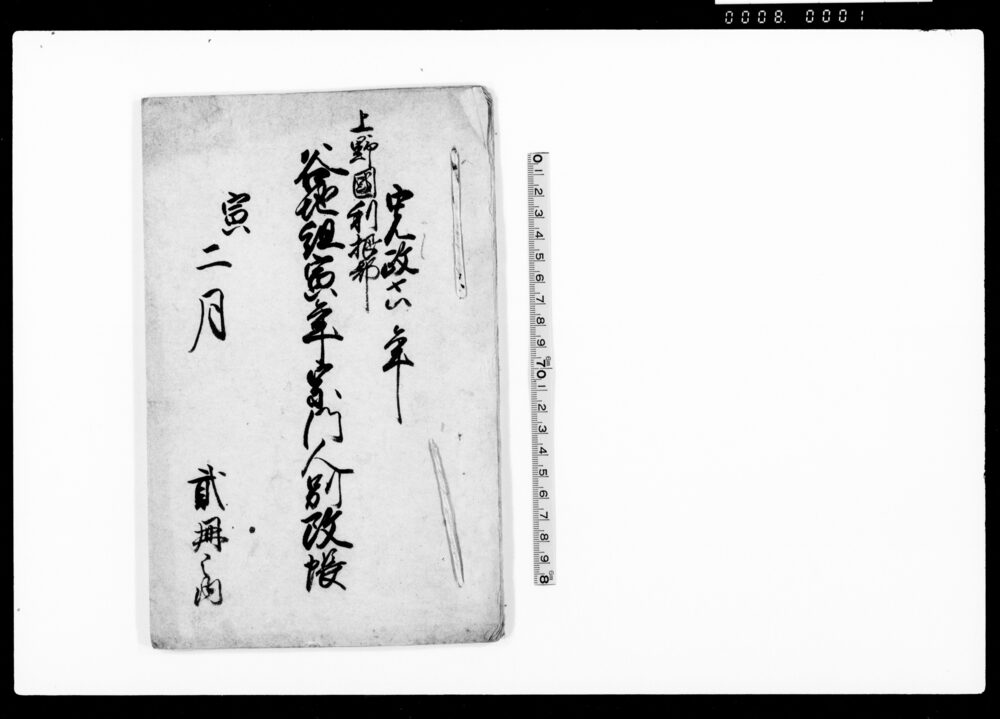 0008. 0001
寛政六年
上野國利根郡
谷地組寅年宗門人別改帳
寅二月
貳冊之内
0 1 2 3 4 5 6 7 8 9 cm 70 1 2 3 4 5 6 7 8 9 cm 8